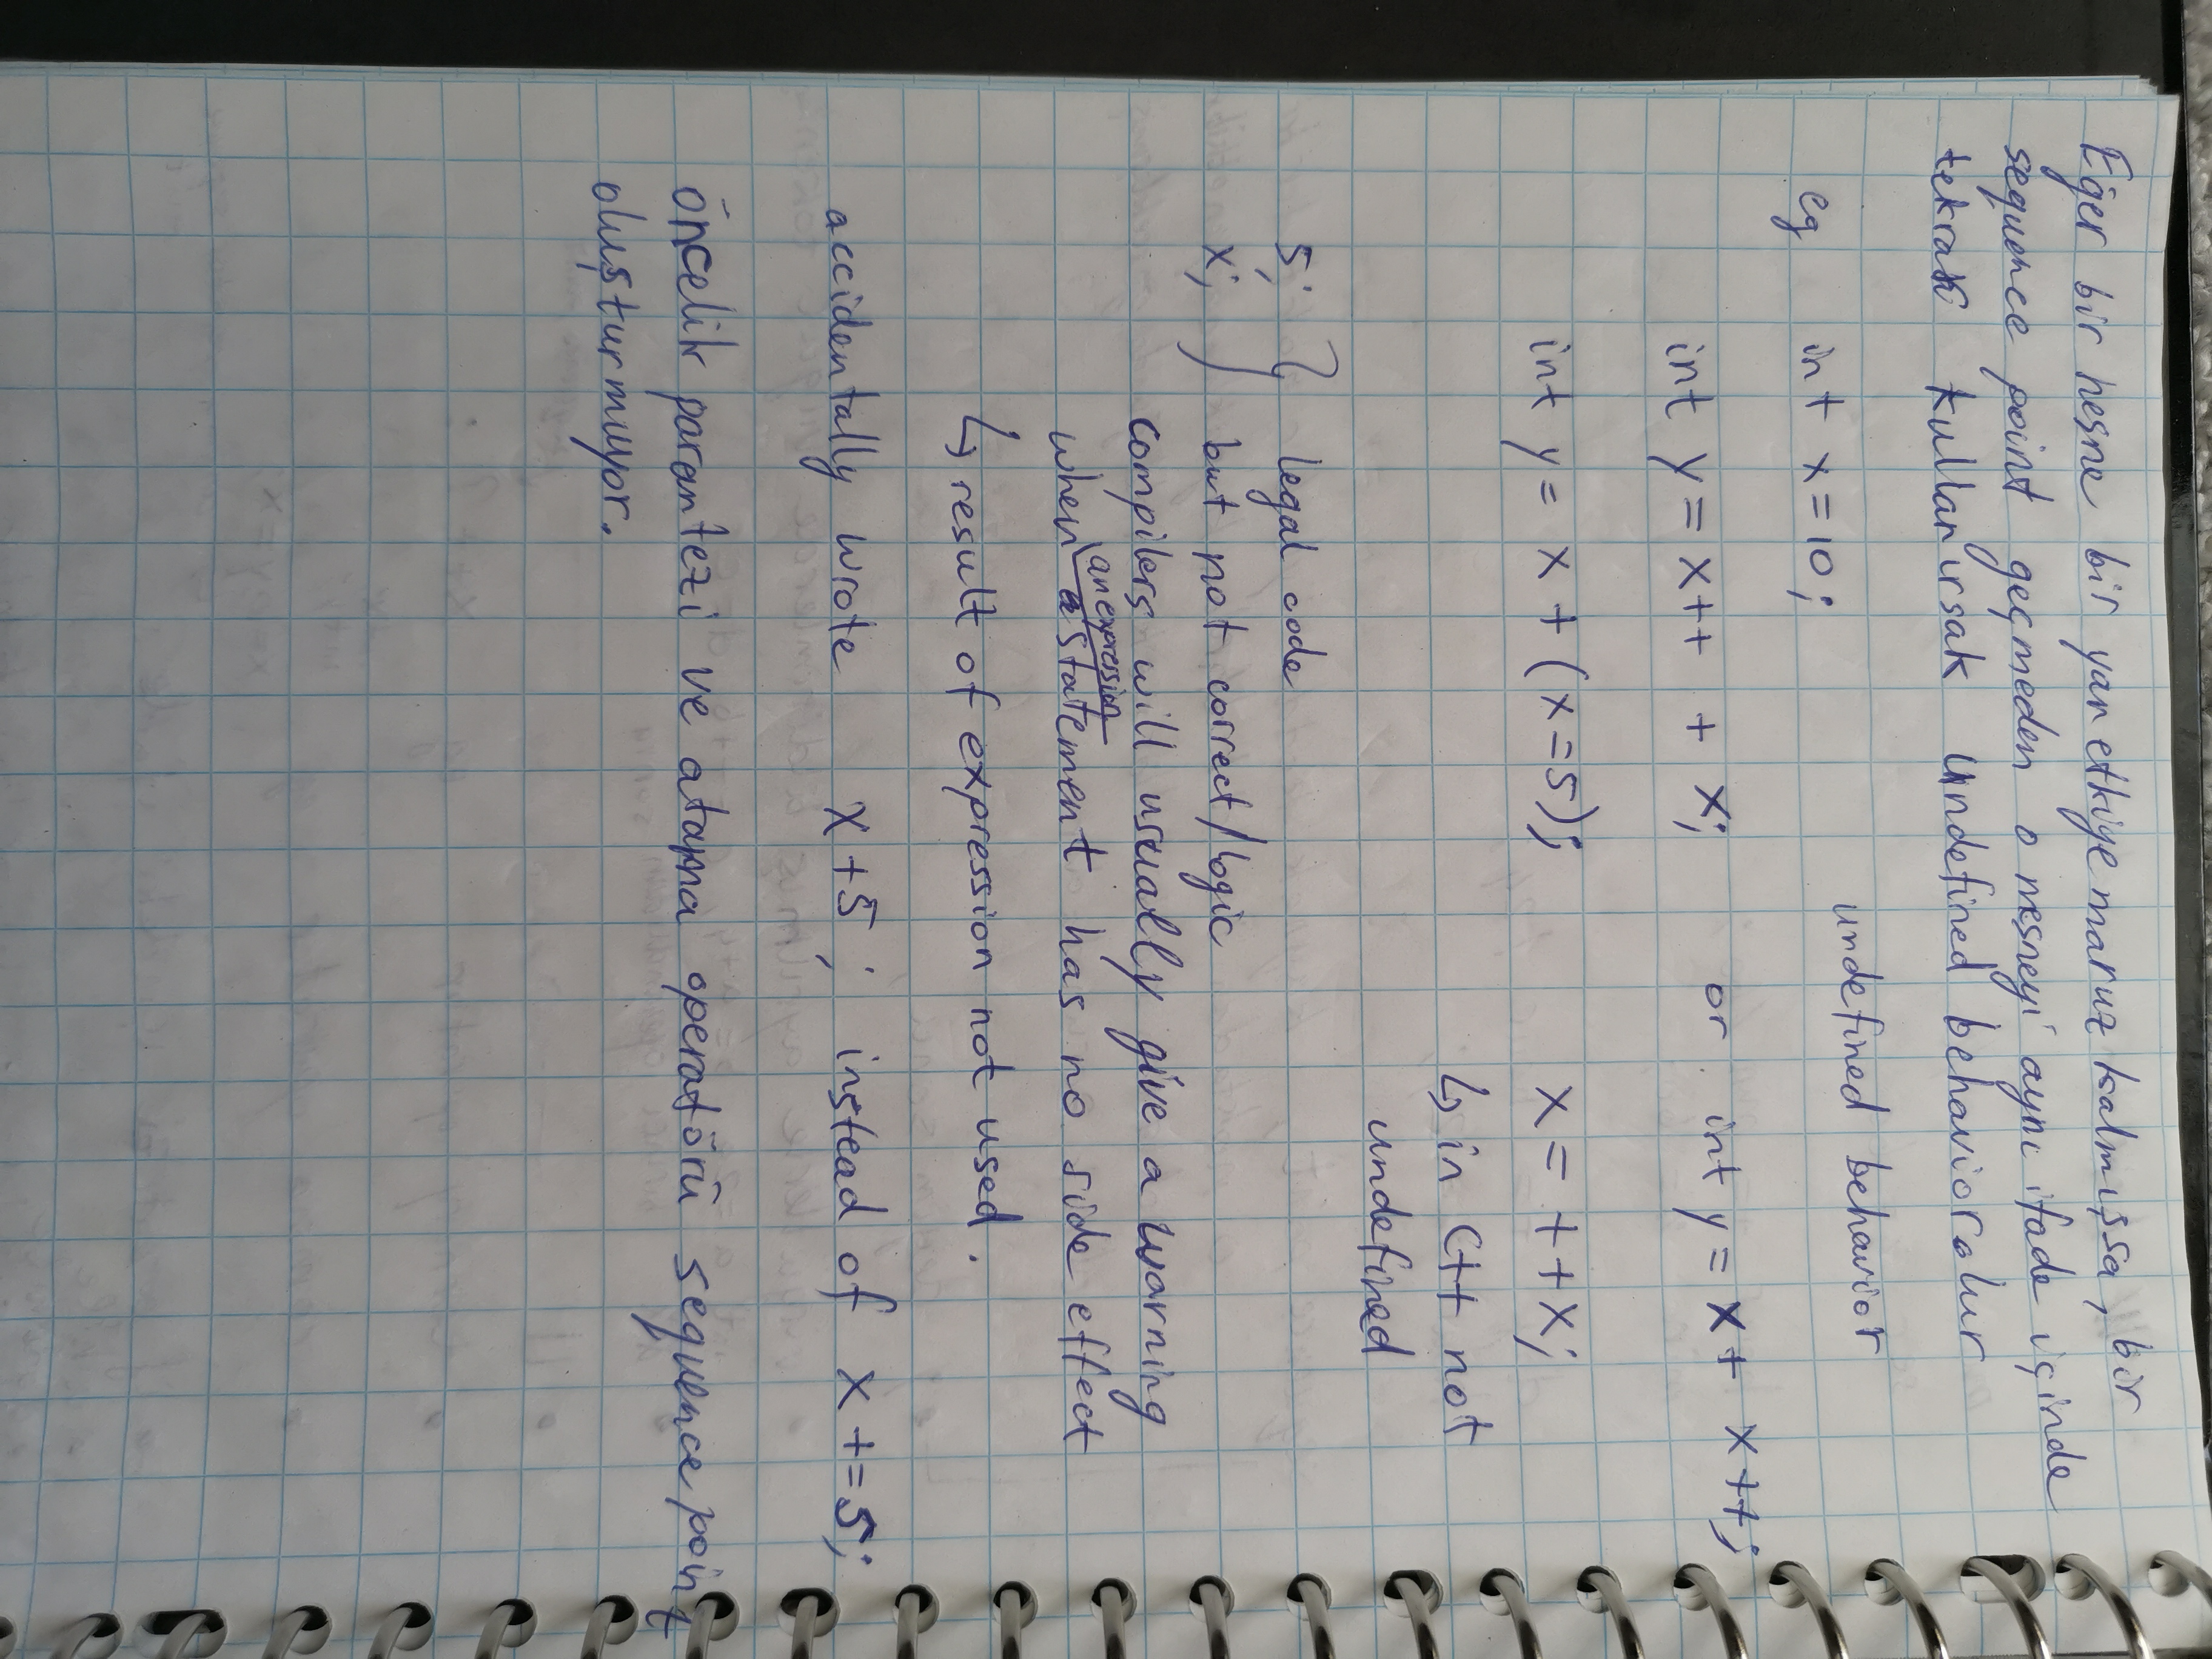 Eğer bir nesne bir yan etkiye maruz kalmışsa, bir
sequence point geçmeden o nesneyi aynı ifade içinde
tekrar kullanırsak undefined behavior olur
undefined behavior
eg int x=10;
int y = x++ + x; or int y = x + x++;
int y = x + (x=5); x = ++x;
↳ in C++ not
undefined
5; } legal code
x; but not correct/logic
compilers will usually give a warning
an expression
when a statement has no side effect
↳ result of expression not used.
accidentally wrote x+5; instead of x+=5;
öncelik parantezi ve atama operatörü sequence point
oluşturmuyor.